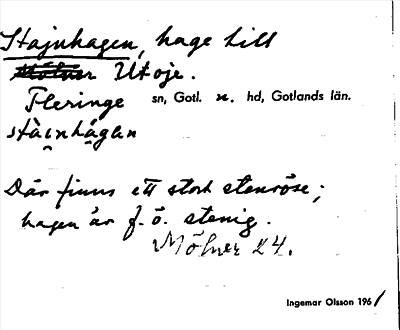 Stajnhagen, hage till
Utoje.
Fleringe sn, Gotl. n. hd, Gotlands län.
stàinhágán
Där finns ett stort stenröse;
hagen är f. ö. stenig.
Mölner 24.
Ingemar Olsson 1961